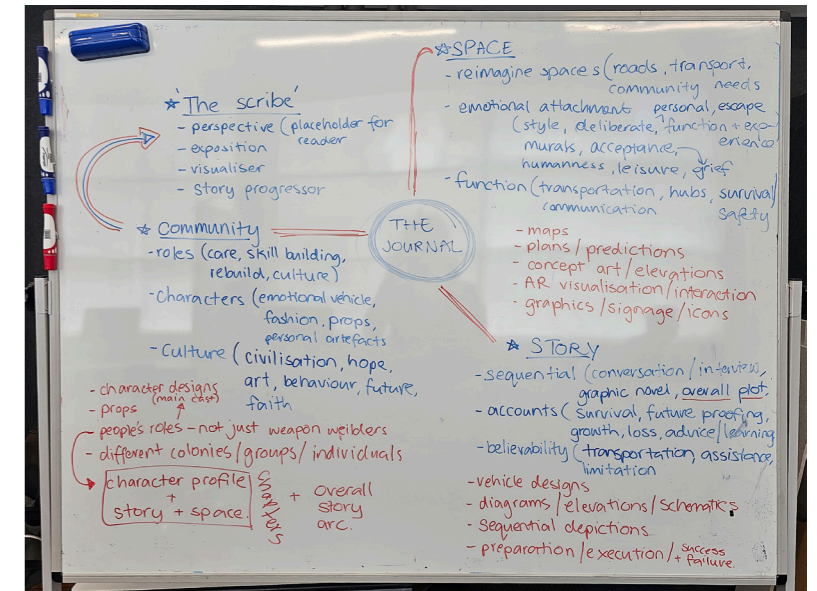 ☆ 'The scribe'
- perspective (placeholder for
reader
- exposition
- visualiser
- story progressor
☆ COMMUNITY
- roles (care, skill building,
rebuild, culture)
- Characters (emotional vehicle,
fashion, props,
personal artefacts
- Culture (civilisation, hope,
art, behaviour, future,
faith
- character designs
(main cast)
- props
- people's roles - not just weapon weilders
- different colonies/groups/individuals
character profile
+
story + space.
chapters
+ overall
story
arc.
THE
JOURNAL
☆ SPACE
- reimagine spaces (roads, transport,
community needs
- emotional attachment personal, escape
(style, deliberate, function + exp-
erience
murals, acceptance,
humanness, leisure, grief
- function (transportation, hubs, survival
communication safety
- maps
- plans/predictions
- concept art/elevations
- AR visualisation/interaction
- graphics/signage/icons
☆ STORY
- sequential (conversation/interview,
graphic novel, overall plot,
- accounts (survival, future proofing,
growth, loss, advice/learning
- believability (transportation, assistance,
limitation
- vehicle designs
- diagrams/elevations/schematics
- Sequential depictions
- preparation/execution/success
+ failure.